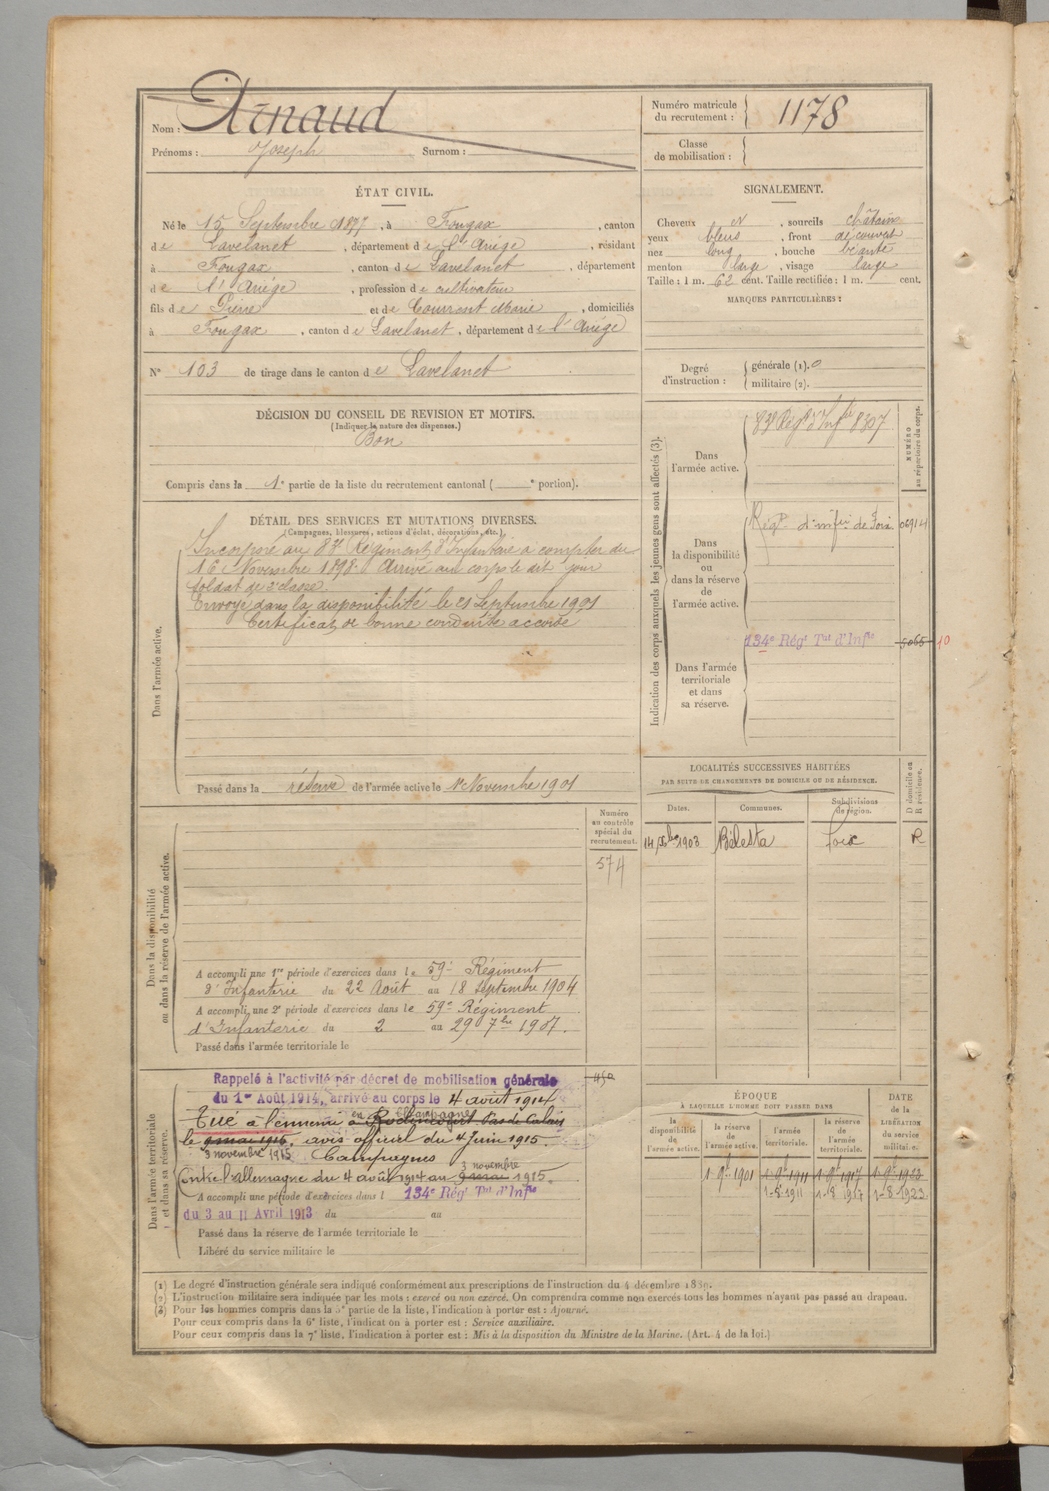 Nom : Arnaud
Prénoms : Joseph Surnom :
Numéro matricule du recrutement : 1178
Classe de mobilisation :
ÉTAT CIVIL.
Né le 15 Septembre 1877, à Fougax, canton
de Lavelanet, département de l'Ariége, résidant
à Fougax, canton de Lavelanet, département
de l'Ariége, profession de cultivateur
fils de Pierre et de Courrent Marie, domiciliés
à Fougax, canton de Lavelanet, département de l'Ariége
N° 103 de tirage dans le canton de Lavelanet
SIGNALEMENT.
Cheveux N, sourcils châtain
yeux bleus, front découvert
nez long, bouche béante
menton large, visage large
Taille : 1 m. 62 cent. Taille rectifiée : 1 m. cent.
MARQUES PARTICULIÈRES :
Degré d'instruction : générale (1). 0
militaire (2).
DÉCISION DU CONSEIL DE REVISION ET MOTIFS.
(Indiquer la nature des dispenses.)
Bon
Compris dans la 1e partie de la liste du recrutement cantonal ( e portion).
DÉTAIL DES SERVICES ET MUTATIONS DIVERSES.
(Campagnes, blessures, actions d'éclat, décorations, etc.)
Dans l'armée active.
Incorporé au 83e Régiment d'Infanterie à compter du
16 Novembre 1898. Arrivé au corps le dit jour
soldat de 2e classe
Envoyé dans la disponibilité le 21 Septembre 1901
Certificat de bonne conduite accordé
Passé dans la réserve de l'armée active le 1er Novembre 1901
Indication des corps auxquels les jeunes gens sont affectés (3).
NUMÉRO au répertoire du corps.
Dans l'armée active.
83e Régt d'Infie 8307
Dans la disponibilité ou dans la réserve de l'armée active.
Régt d'infie de Foix. 06914
Dans l'armée territoriale et dans sa réserve.
134e Régt Tal d'Infie 5065 10
LOCALITÉS SUCCESSIVES HABITÉES
PAR SUITE DE CHANGEMENTS DE DOMICILE OU DE RÉSIDENCE.
D domicile ou R résidence.
Dates. Communes. Subdivisions de région.
14 Xbre 1903 Bélesta Foix R
Dans la disponibilité ou dans la réserve de l'armée active.
Numéro au contrôle spécial du recrutement.
574
A accompli une 1re période d'exercices dans le 59e Régiment
d'Infanterie du 22 Août au 18 Septembre 1904
A accompli une 2e période d'exercices dans le 59e Régiment
d'Infanterie du 2 au 29 7bre 1907.
Passé dans l'armée territoriale le
Dans l'armée territoriale et dans sa réserve.
Rappelé à l'activité par décret de mobilisation générale
du 1er Août 1914, arrivé au corps le 4 août 1914
en Champagne
Tué à l'ennemi à Roclincourt Pas de Calais
le 9 mai 1915, avis officiel du 4 Juin 1915.
3 novembre 1915 Campagnes
3 novembre
Contre l'allemagne du 4 août 1914 au 9 mai 1915.
A accompli une période d'exercices dans l 134e Régt Tal d'Infie
du 3 au 11 Avril 1913 du au
Passé dans la réserve de l'armée territoriale le
Libéré du service militaire le
ÉPOQUE
À LAQUELLE L'HOMME DOIT PASSER DANS
DATE de la LIBÉRATION du service militaire.
la disponibilité de l'armée active.
la réserve de l'armée active.
l'armée territoriale.
la réserve de l'armée territoriale.
1-9bre 1901 1-9bre 1911 1-9bre 1917 1-9bre 1923
1-8-1911 1-8-1917 1-8-1923
(1) Le degré d'instruction générale sera indiqué conformément aux prescriptions de l'instruction du 4 décembre 1889.
(2) L'instruction militaire sera indiquée par les mots : exercé ou non exercé. On comprendra comme non exercés tous les hommes n'ayant pas passé au drapeau.
(3) Pour les hommes compris dans la 5e partie de la liste, l'indication à porter est : Ajourné.
Pour ceux compris dans la 6e liste, l'indication à porter est : Service auxiliaire.
Pour ceux compris dans la 7e liste, l'indication à porter est : Mis à la disposition du Ministre de la Marine. (Art. 4 de la loi.)